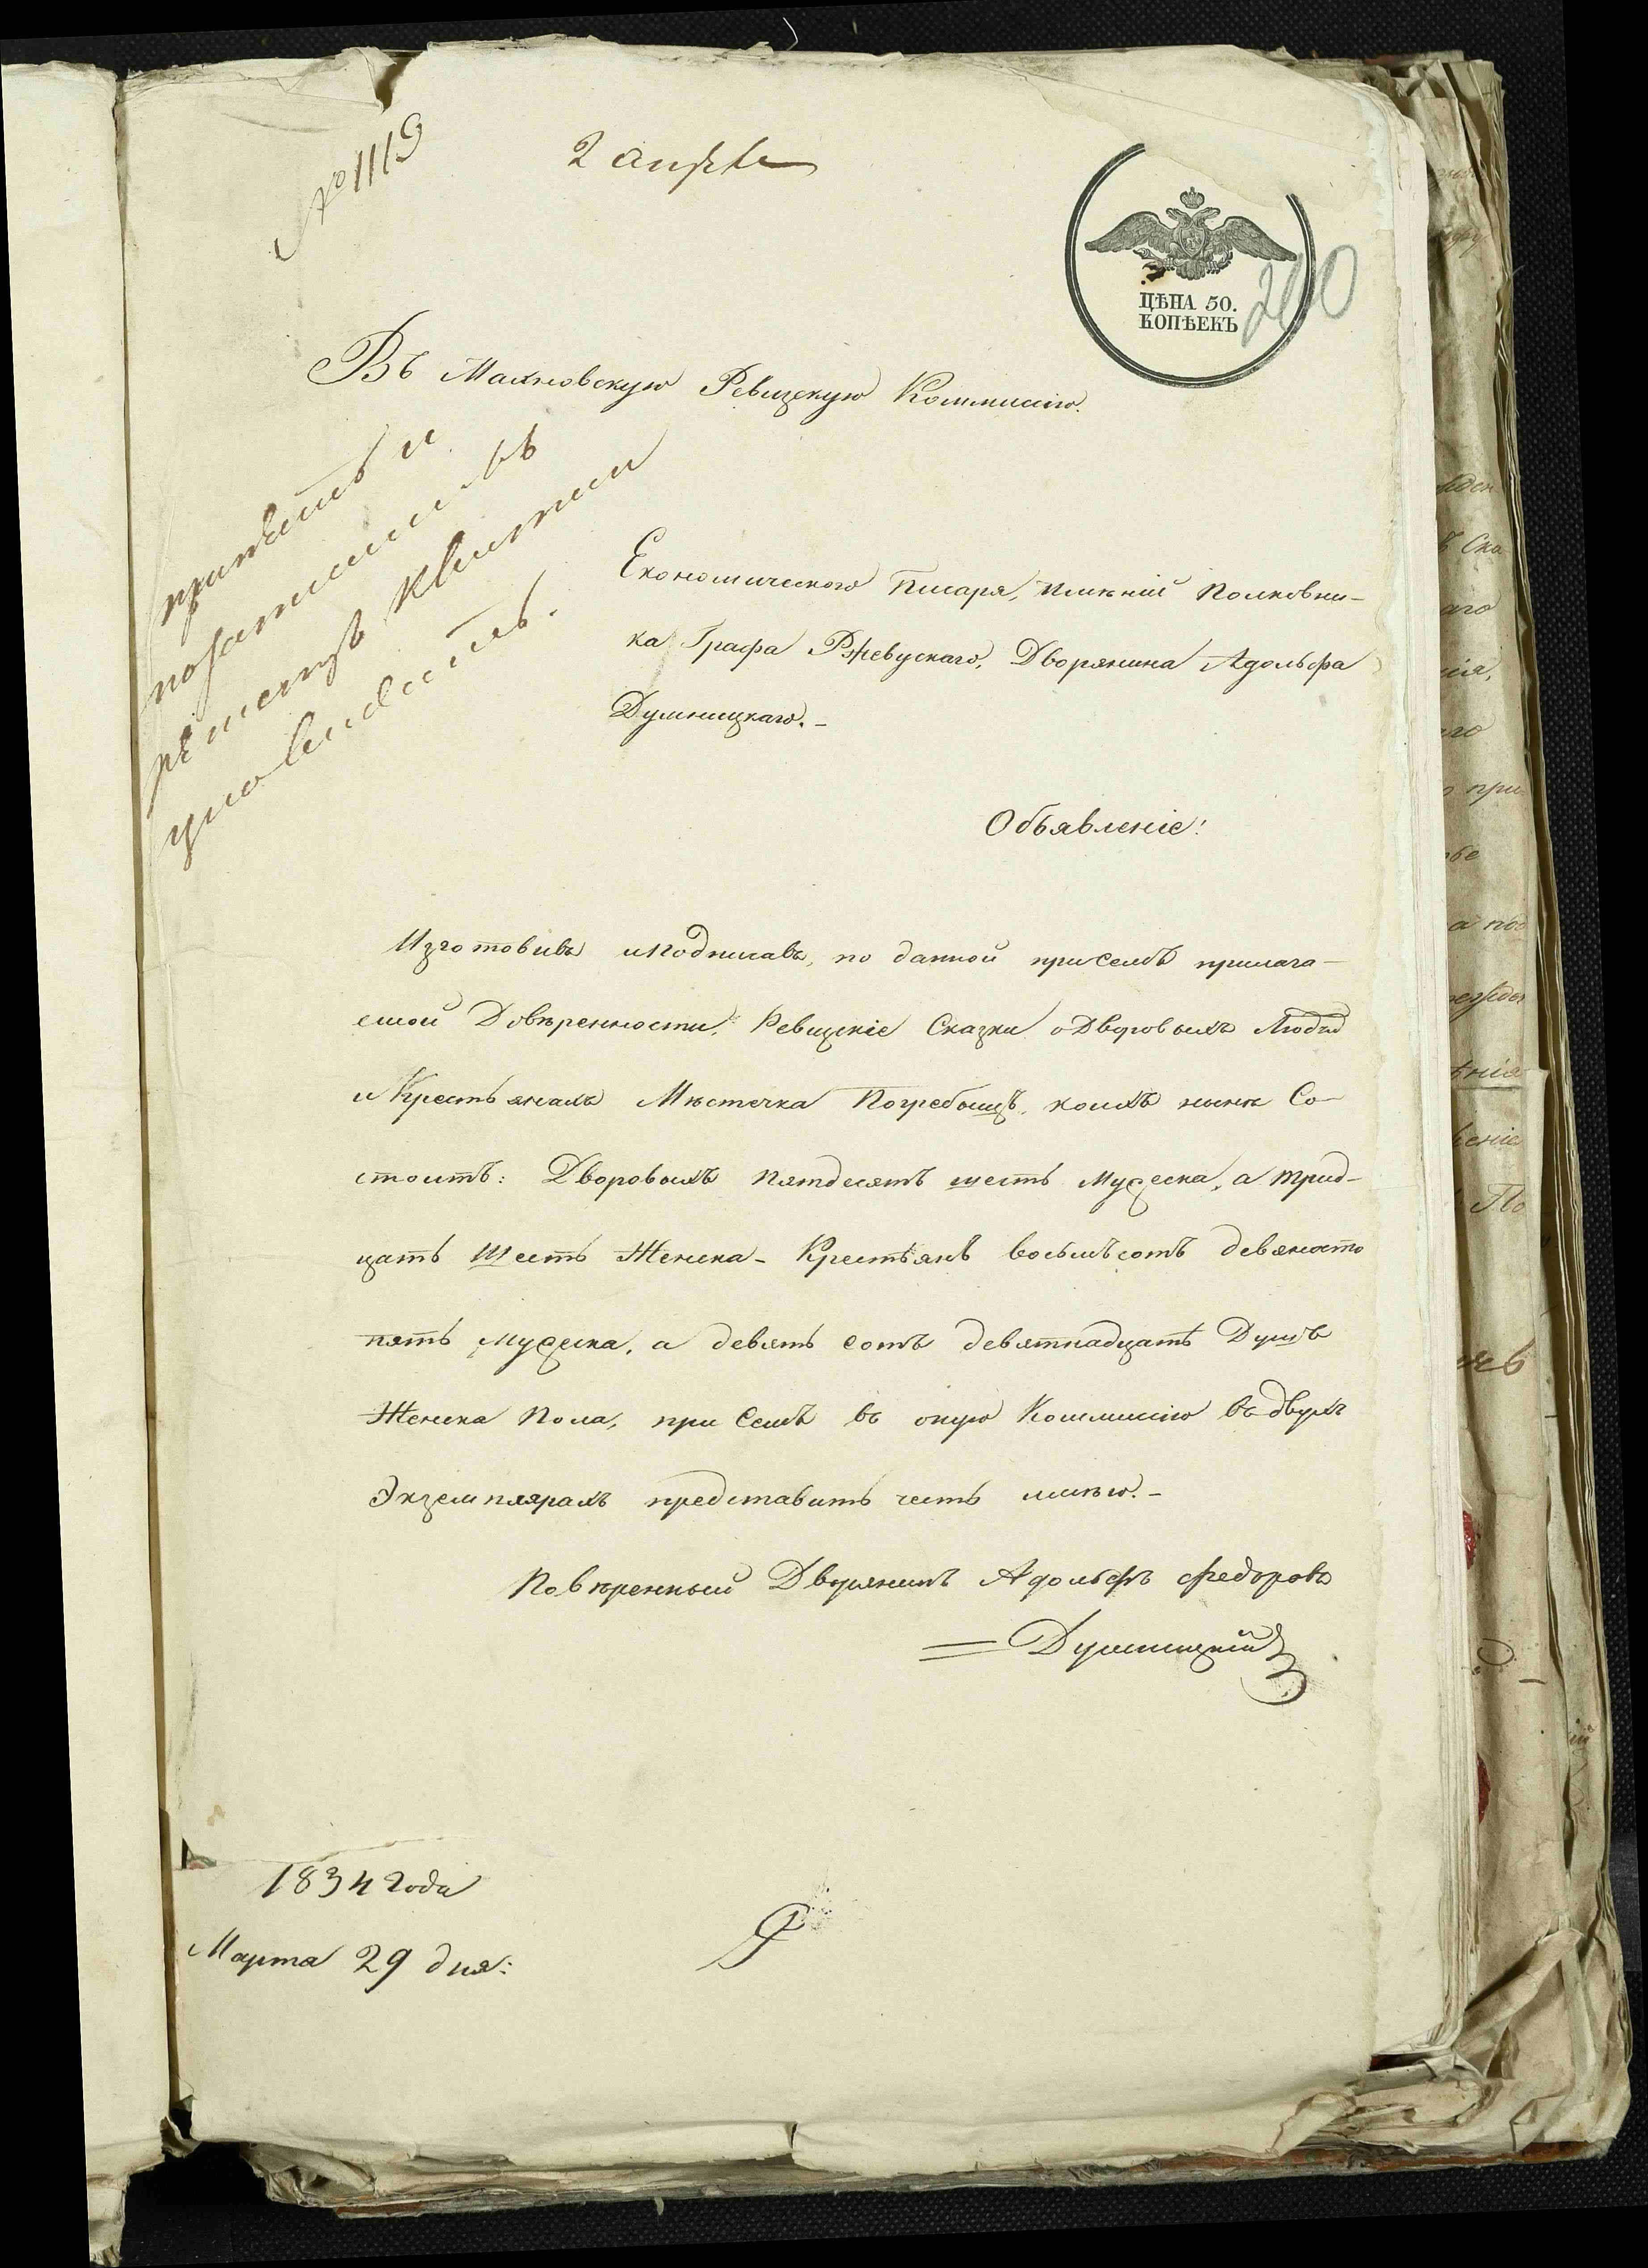 № 1119
2 апреля
ЦѢНА 50.
КОПѢЕКЪ
200
Въ Махновскую Ревизскую Коммисію.
принять и
поступлении въ
квитанци
Економического Писаря, имѣній Полковни-
ка Графа Ржевускаго, Дворянина Адольфа
Думницкаго.-
Объявленіе!
Изготовивъ и подписавъ, по данной при семъ прилага-
емой Довѣренности, Ревизскіе Сказки о Дворовыхъ Людяхъ
и Крестьянахъ Мѣстечка Погребыщъ, коихъ нынѣ Со-
стоитъ: Дворовыхъ пятдесятъ шесть мужеска, а трид-
цать шесть Женска - Крестьянъ восьмъсотъ девяносто
пять мужеска, а девять сотъ девятнадцать Душъ
Женска Пола, при семъ въ оную Коммисію въ двухъ
Экземплярахъ представить честь имѣю.-
Повѣренный Дворянинъ Адольфъ Федоровъ
= Думницкій
1834 года
Марта 29 дня: